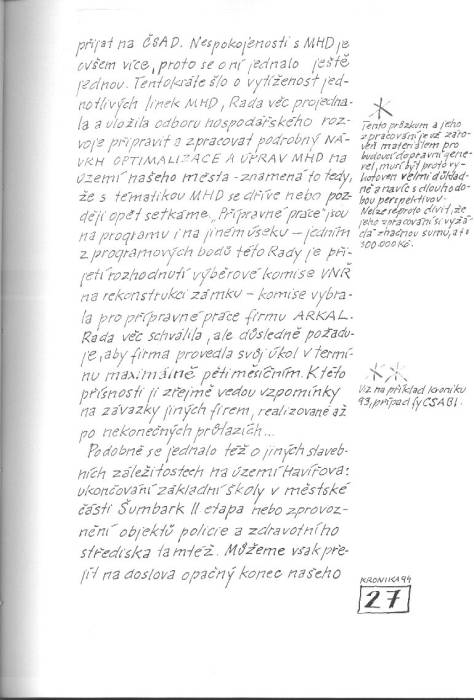 přijat na ČSAD. Nespokojenosti s MHD je
ovšem více, proto se o ní jednalo ještě
jednou. Tentokráte šlo o vytíženost jed-
notlivých linek MHD, Rada věc projedna-
la a uložila odboru hospodářského roz-
voje připravit a zpracovat podrobný NÁ-
VRH OPTIMALIZACE A ÚPRAV MHD na
území našeho města - znamená to tedy,
že s tématikou MHD se dříve nebo poz-
ději opět setkáme. „Přípravné práce" jsou
na programu i na jiném úseku - jedním
z programových bodů této Rady je při-
jetí rozhodnutí výběrové komise VNŘ
na rekonstrukci zámku - komise vybra-
la pro přípravné práce firmu ARKAL.
Rada věc schválila, ale důsledně požadu-
je, aby firma provedla svůj úkol v termí-
nu maximálně pětiměsíčním. K této
přísnosti ji zřejmě vedou vzpomínky
na závazky jiných firem, realizované až
po nekonečných průtazích...
Podobně se jednalo též o jiných staveb-
ních záležitostech na území Havířova:
ukončování základní školy v městské
části Šumbark II etapa nebo zprovoz-
nění objektů policie a zdravotního
střediska tamtéž. Můžeme však pře-
jít na doslova opačný konec našeho
*
Tento průzkum a jeho
zpracování je už záro-
veň materiálem pro
budoucí dopravní gene-
rel, musí být proto vy-
hotoven velmi důklad-
ně a navíc s dlouhodo-
bou perspektivou.
Nelze se proto divit, že
jeho zpracování si vyžá-
dá zhadnou sumu, a to
300.000 Kč.
**
Viz na příklad kroniku
93, případ fy CSABI.
KRONIKA 94
27